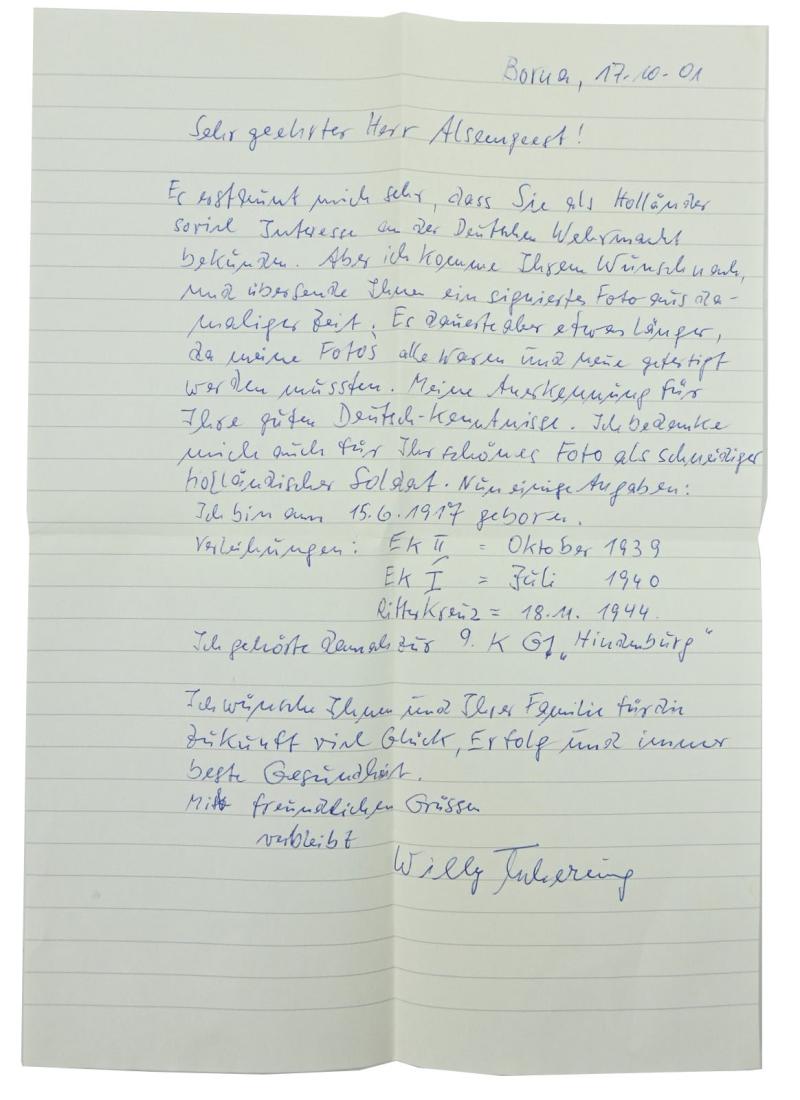 Borna, 17.10.01
Sehr geehrter Herr Alsemgeest!
Es erstaunt mich sehr, dass Sie als Holländer
soviel Interesse an der Deutschen Wehrmacht
bekunden. Aber ich komme Ihrem Wunsch nach,
und übersende Ihnen ein signiertes Foto aus da-
maliger Zeit. Es dauerte aber etwas länger,
da meine Fotos alle waren und neue gefertigt
werden mussten. Meine Anerkennung für
Ihre guten Deutsch-Kenntnisse. Ich bedanke
mich auch für Ihr schönes Foto als schneidiger
holländischer Soldat. Nun einige Angaben:
Ich bin am 15.6.1917 geboren.
Verleihungen: EK II = Oktober 1939
EK I = Juli 1940
Ritterkreuz = 18.11.1944.
Ich gehörte damals zur 9. K GJ „Hindenburg"
Ich wünsche Ihnen und Ihrer Familie für die
Zukunft viel Glück, Erfolg und immer
beste Gesundheit.
Mit freundlichen Grüssen
verbleibt
Willy